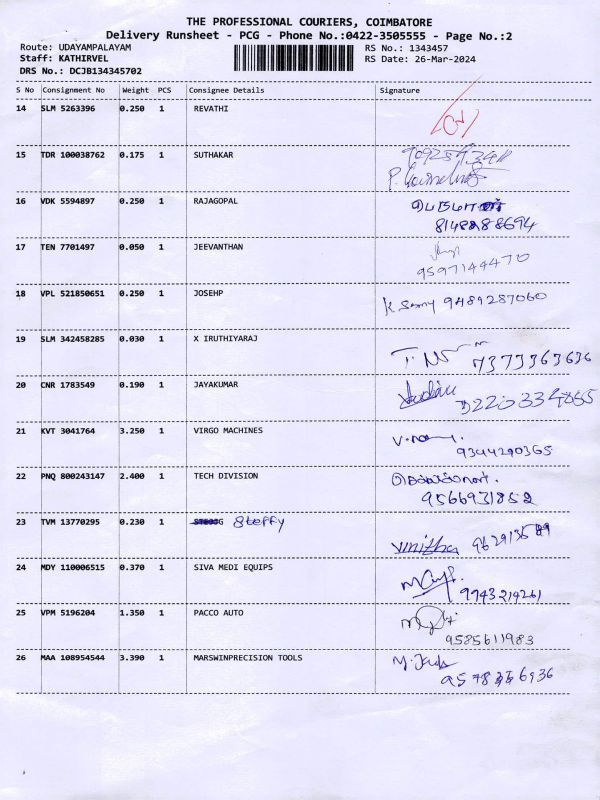 THE PROFESSIONAL COURIERS, COIMBATORE
Delivery Runsheet - PCG - Phone No.:0422-3505555 - Page No.:2
Route: UDAYAMPALAYAM RS No.: 1343457
Staff: KATHIRVEL RS Date: 26-Mar-2024
DRS No.: DCJB134345702
S No Consignment No Weight PCS Consignee Details Signature
14 SLM 5263396 0.250 1 REVATHI
15 TDR 100038762 0.175 1 SUTHAKAR
16 VDK 5594897 0.250 1 RAJAGOPAL
8148288694
17 TEN 7701497 0.050 1 JEEVANTHAN
9597144470
18 VPL 521850651 0.250 1 JOSEHP K Samy 9489287060
19 SLM 342458285 0.030 1 X IRUTHIYARAJ
7373363636
20 CNR 1783549 0.190 1 JAYAKUMAR
21 KVT 3041764 3.250 1 VIRGO MACHINES
9344290365
22 PNQ 800243147 2.400 1 TECH DIVISION
9566931852
23 TVM 13770295 0.230 1 Steffy
Vinitha
24 MDY 110006515 0.370 1 SIVA MEDI EQUIPS
9943219261
25 VPM 5196204 1.350 1 PACCO AUTO
9585611983
26 MAA 108954544 3.390 1 MARSWINPRECISION TOOLS